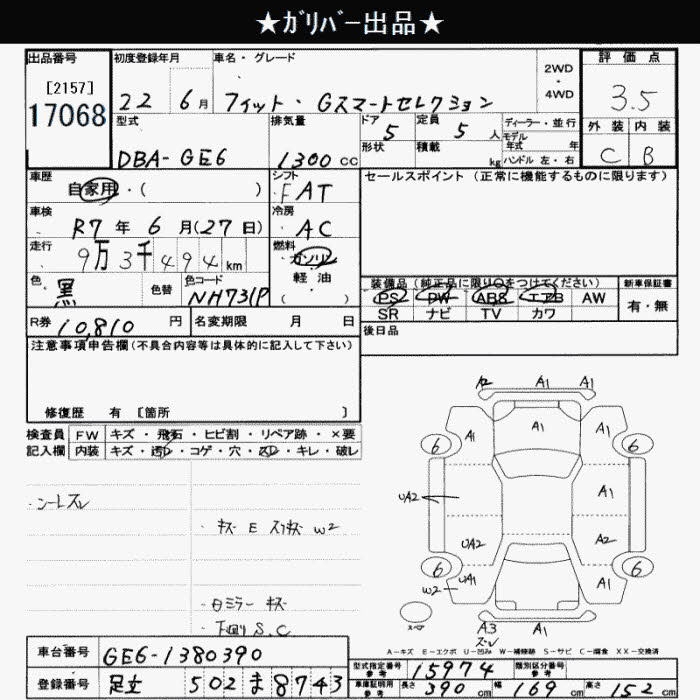 ★ｶﾞﾘﾊﾞｰ出品★
出品番号 初度登録年月 車名・グレード 2WD・4WD 評価点
[2157]
17068 22 6月 フィット・Gスマートセレクション 3.5
型式 排気量 ドア 定員 ディーラー・並行 外装 内装
DBA-GE6 1300CC 5 5人 モデル年式 年
形状 積載 kg ハンドル 左・右 C B
車歴 シフト セールスポイント(正常に機能するものに限ります)
自家用・( ) FAT
車検 冷房
R7年6月(27日) AC
走行 燃料
9万3千494km ガソリン
軽油
( )
色 色替 色コード 装備品(純正品に限り○をつけてください) 新車保証書
黒 NH731P PS PW ABS エアB AW 有・無
SR ナビ TV カワ
R券 10,810円 名変期限 月 日 後日品
注意事項申告欄(不具合内容等は具体的に記入して下さい)
修復歴 有 [箇所 ]
検査員 FW キズ・飛石・ヒビ割・リペア跡・×要
記入欄 内装 キズ・汚れ・コゲ・穴・スレ・キレ・破レ
・シートスレ
・キズ E スリキズ W2
・日ミラー キズ
・下回り S.C
A2 A1 A1
A1 A1 A1
6 6
UA2 A1
UA2 A2
6 6
W2 UA1 A1
A3 A1 UA1
スレ
A-キズ E-エクボ U-凹み W-補修跡 S-サビ C-腐食 XX-交換済
車台番号 GE6-1380390
登録番号 足立 502 ま 8743
型式指定番号 参考 15974 類別区分番号 参考
車庫証明用 参考 長さ 390cm 幅 169cm 高さ 152cm